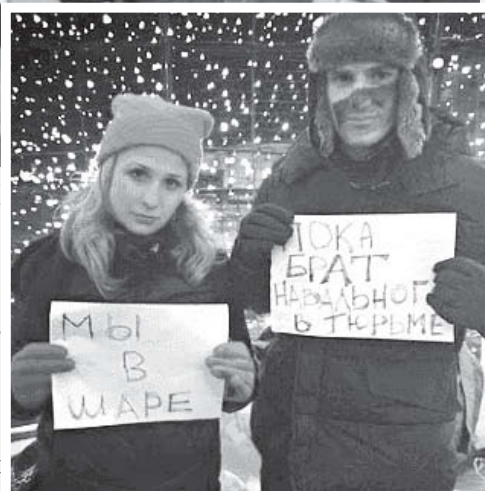 МЫ
В
ШАРЕ
ПОКА
БРАТ
НАВАЛЬНОГ
В ТЮРЬМЕ